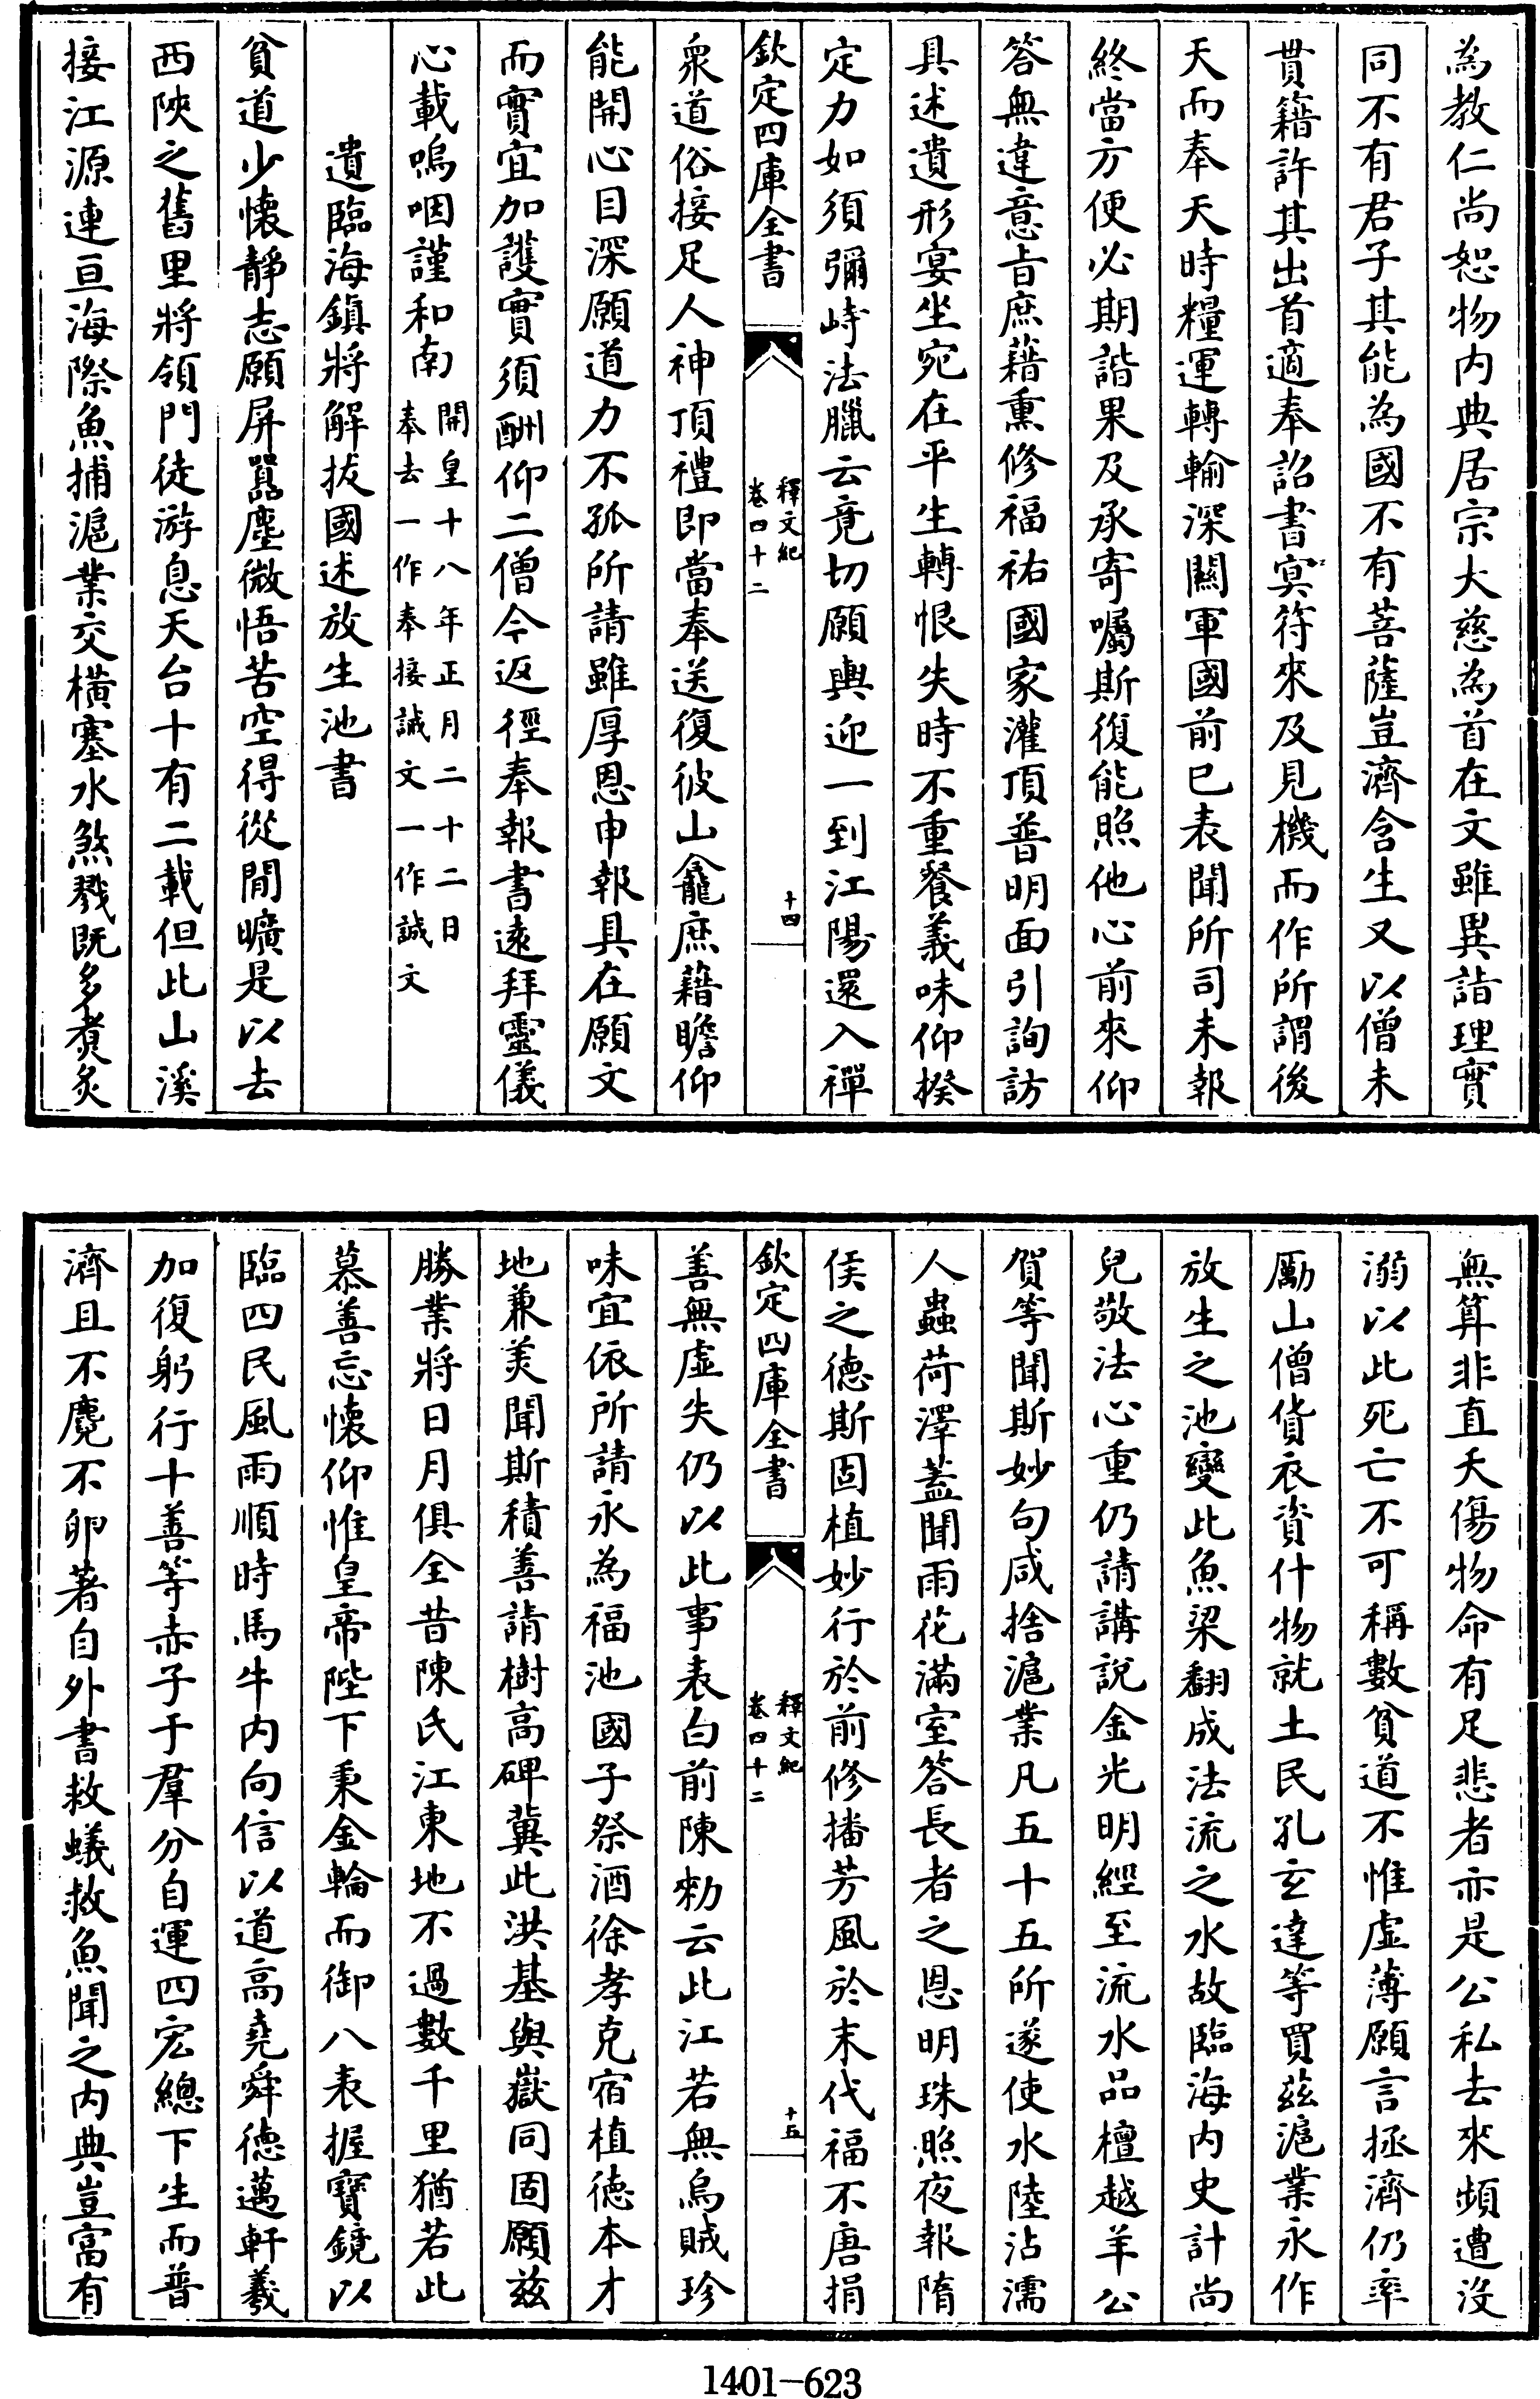 為教仁尚恕物内典居宗大慈為首在文雖異詣理實
同不有君子其能為國不有菩薩豈濟含生又以僧未
貫籍許其出首適奉詔書冥符來及見機而作所謂後
天而奉天時糧運轉輸深關軍國前已表聞所司未報
終當方便必期諧果及承寄囑斯復能照他心前來仰
答無違意旨庶藉熏修福祐國家灌頂普明面引詢訪
具述遺形宴坐宛在平生轉恨失時不重餐義味仰揆
定力如須彌峙法臘云竟切願輿迎一到江陽還入禪
欽定四庫全書
釋文紀
卷四十二
十四
衆道俗接足人神頂禮即當奉送復彼山龕庶藉瞻仰
能開心目深願道力不孤所請雖厚恩申報具在願文
而實宜加護實須酬仰二僧今返徑奉報書遠拜靈儀
心載嗚咽謹和南
開皇十八年正月二十二日
奉去一作奉接誠文一作誠文
遺臨海鎮將解拔國述放生池書
貧道少懷靜志願屏囂塵微悟苦空得從閒曠是以去
西陜之舊里將領門徒游息天台十有二載但此山溪
接江源連亘海際魚捕滬業交橫塞水煞戮既多煑炙
無算非直夭傷物命有足悲者亦是公私去來頻遭沒
溺以此死亡不可稱數貧道不惟虛薄願言拯濟仍率
勵山僧貨衣資什物就土民孔玄達等買兹滬業永作
放生之池變此魚梁翻成法流之水故臨海内史計尚
兒敬法心重仍請講說金光明經至流水品檀越羊公
賀等聞斯妙句咸捨滬業凡五十五所遂使水陸沾濡
人蟲荷澤蓋聞雨花滿室答長者之恩明珠照夜報隋
侯之德斯固植妙行於前修播芳風於末代福不唐捐
欽定四庫全書
釋文紀
卷四十二
十五
善無虛失仍以此事表白前陳勑云此江若無烏賊珍
味宜依所請永為福池國子祭酒徐孝克宿植德本才
地兼美聞斯積善請樹高碑冀此洪基與嶽同固願兹
勝業將日月俱全昔陳氏江東地不過數千里猶若此
慕善忘懷仰惟皇帝陛下秉金輪而御八表握寶鏡以
臨四民風雨順時馬牛内向信以道高堯舜德邁軒羲
加復躬行十善等赤子于羣分自運四宏總下生而普
濟且不麛不卵著自外書救蟻救魚聞之内典豈寓有
1401-623